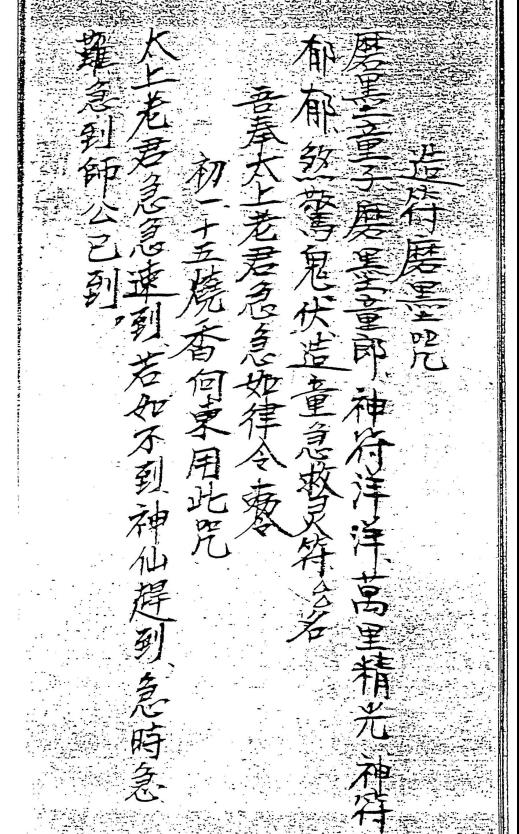 造符磨墨咒
磨墨童子磨墨童郎、神符洋洋、萬里精光、神符
郁郁、煞驚鬼伏造童急救灵符么名
吾奉太上老君急急如律令敕令
初一十五燒香向東用此咒
太上老君急急速到、若如不到、神仙趕到、急時急
難急到師公已到，